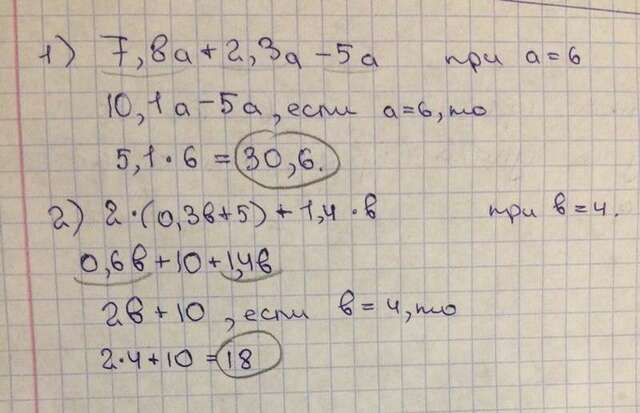 1) 7,8а + 2,3а - 5а при а = 6
10,1а - 5а, если а = 6, то
5,1 · 6 = 30,6.
2) 2 · (0,3в + 5) + 1,4 · в при в = 4.
0,6в + 10 + 1,4в
2в + 10, если в = 4, то
2 · 4 + 10 = 18